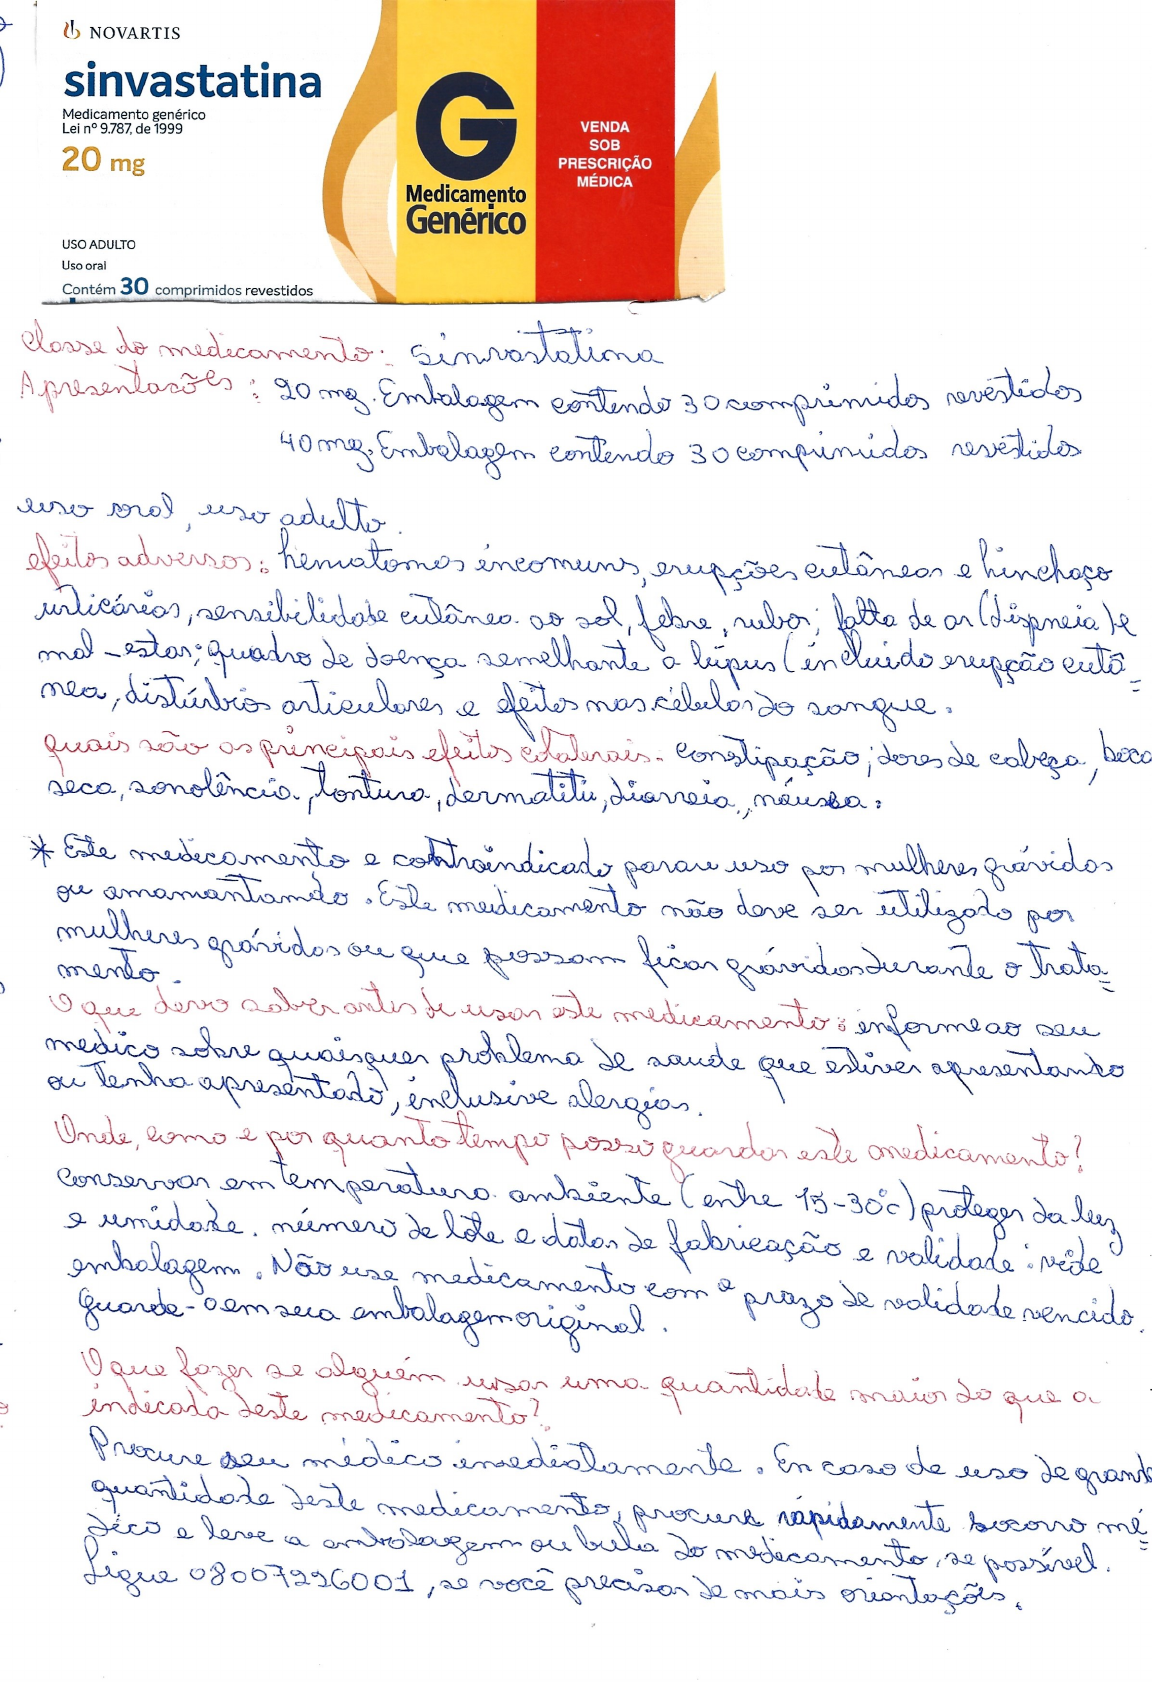 NOVARTIS
sinvastatina
Medicamento genérico
Lei nº 9.787, de 1999
20 mg
USO ADULTO
Uso oral
Contém 30 comprimidos revestidos
G
Medicamento
Genérico
VENDA
SOB
PRESCRIÇÃO
MÉDICA
Classe do medicamento: Sinvastatina
Apresentasões: 20 mg. Embalagem contendo 30 comprimidos revestidos
40 mg. Embalagem contendo 30 comprimidos revestidos
uso oral, uso adulto.
efeitos adversos: hematomas incomuns, erupções cutâneas e hinchaço
urticárias, sensibilidade cutânea ao sol, febre, rubor; falta de ar (dispneia) e
mal-estar; quadro de doença semelhante a lúpus (incluido erupção cutâ=
nea, distúrbios articulares e efeitos nas células do sangue.
quais são os principais efeitos colaterais. constipação; dores de cabeça, boca
seca, sonolência, tontura, dermatiti, diarreia, náusea.
* Este medicamento e contraindicado para u uso por mulheres grávidas
ou amamantando. Este medicamento não deve ser utilizado por
mulheres grávidas ou que possam ficar grávidas durante o trata=
mento.
O que devo saber antes de usar este medicamento: informe ao seu
medico sobre quaisquer problema de saude que estiver apresentando
ou tenha apresentado, inclusive alergias.
Onde, como e por quanto tempo posso guardar este medicamento?
Conservar em temperatura ambiente (entre 15-30°c) proteger da luz
e umidade. número de lote e datas de fabricação e validade: vide
embalagem. Não use medicamento com o prazo de validade vencido.
Guarde-o em sua embalagem original.
O que fazer se alguém usar uma quantidade maior do que a
indicada deste medicamento?
Procure seu médico imediatamente. En caso de uso de grande
quantidade deste medicamento, procure rápidamente socorro mé=
dico e leve a embalagem ou bula do medicamento, se possível.
Ligue 08007226001, se você precisar de mais orientações.